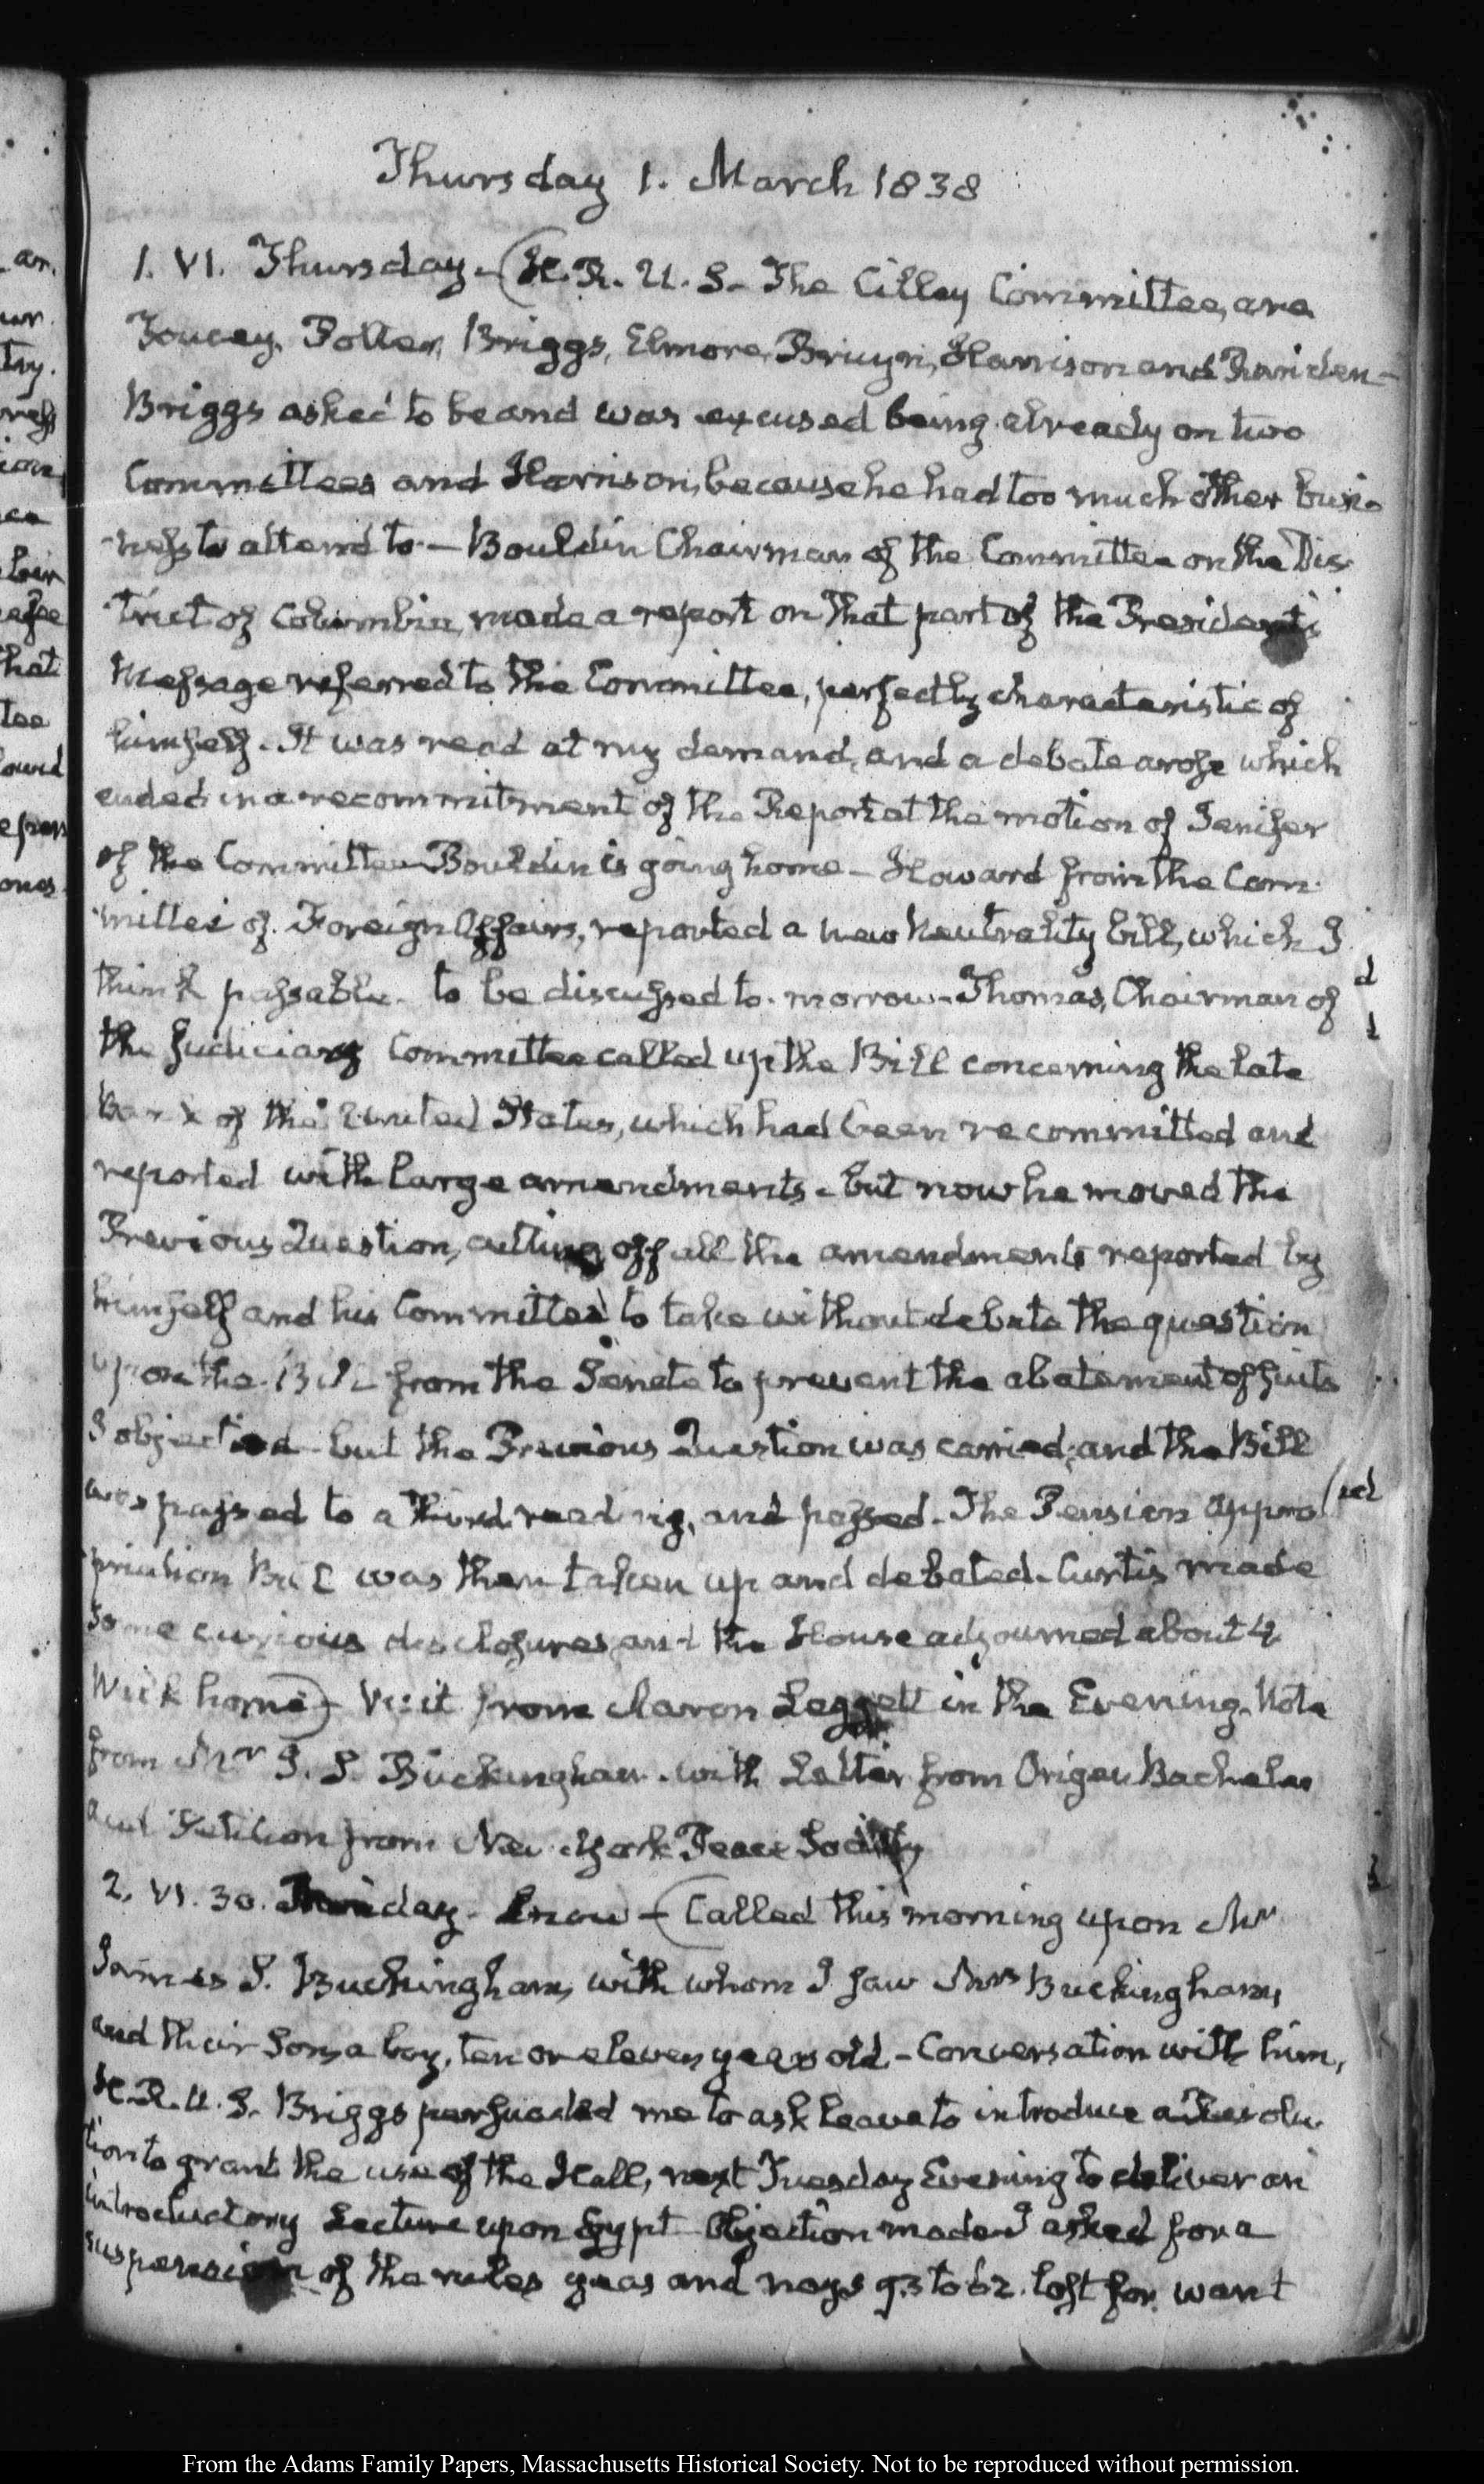 Thursday 1. March 1838
1. VI. Thursday - (H.R. U.S. - The Cilley Committee, are
Toucey, Potter, Briggs, Elmore, Bruyn, Harrison and Rariden -
Briggs asked to be and was excused being already on two
Committees and Harrison, because he had too much other busi-
-ness to attend to - Bouldin Chairman of the Committee on the Dis-
-trict of Columbia, made a report on that part of the President's
Message referred to the Committee, perfectly characteristic of
himself. It was read at my demand, and a debate arose which
ended in a recommitment of the Report at the motion of Jenifer
of the Committee - Bouldin is going home - Howard from the Com-
-mittee of Foreign Affairs, reported a new Neutrality bill, which I
think passable - to be discussed to-morrow - Thomas, Chairman of
the Judiciary Committee called up the Bill concerning the late
Bank of the United States, which had been recommitted and
reported with large amendments - but now he moved the
Previous Question, cutting off all the amendments reported by
himself and his Committee to take without debate the question
upon the Bill from the Senate to prevent the abatement of suits
I objected - but the Previous Question was carried, and the Bill
was passed to a third reading, and passed - The Pension appro
-priation Bill was then taken up and debated - Curtis made
some curious disclosures, and the House adjourned about 4
Walk home) - Visit from Aaron Leggett in the Evening. Note
from Mr J. S. Buckingham - with Letter from Origen Bacheler
and Petition from New-York Peace Society
2. VI. 30. Friday - Snow - (Called this morning upon Mr
James S. Buckingham, with whom I saw Mrs Buckingham,
and their Son, a boy, ten or eleven years old - Conversation with him,
H.R. U.S. Briggs persuaded me to ask leave to introduce a Resolu-
tion to grant the use of the Hall, next Tuesday Evening to deliver an
introductory Lecture upon Egypt - Objection made - I asked for a
suspension of the rules yeas and nays 93 to 62. lost for want
an.
try.
ion
hat
tee
ones
d
From the Adams Family Papers, Massachusetts Historical Society. Not to be reproduced without permission.